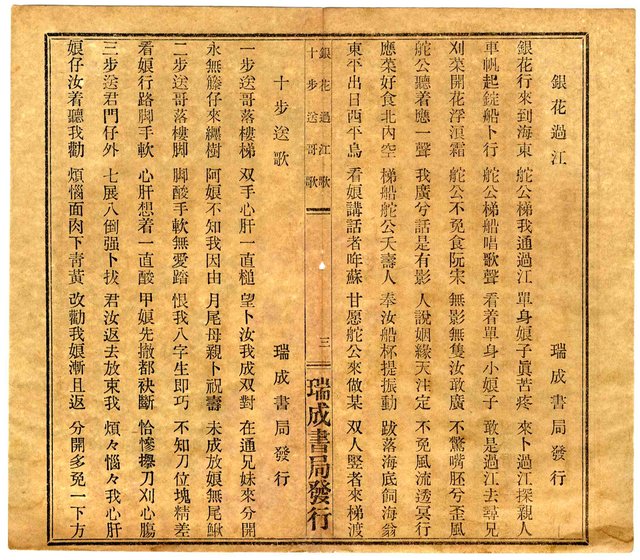 銀花過江　瑞成書局發行
銀花行來到海東　舵公梯我通過江　單身娘子眞苦疼　來卜過江探親人
車帆起錠船卜行　舵公梯船唱歌聲　看着單身小娘子　敢是過江去尋兄
刈菜開花浮滇霜　舵公不免食阮宋　無影無隻汝敢廣　不驚嘴胚兮歪風
舵公聽着應一聲　我廣兮話是有影　人說姻緣天注定　不免風流透冥行
應菜好食北內空　梯船舵公夭壽人　奉汝船杯提振動　跋落海底飼海翁
東平出日西平烏　看娘講話者哖蘇　甘愿舵公來做某　双人竪者來梯渡
銀花過江歌
十步送哥歌
三
瑞成書局發行
十步送歌　瑞成書局發行
一步送哥落樓梯　双手心肝一直槌　望卜汝我成双對　在通兄妹來分開
永無籐仔來纒樹　阿娘不知我因由　月尾母親卜祝壽　未成放娘無尾鰍
二步送哥落樓脚　脚酸手軟無愛踏　恨我八字生即巧　不知刀位塊精差
看娘行路脚手軟　心肝想着一直酸　甲娘先撤都袂斷　恰慘擦刀刈心腸
三步送君門仔外　七展八倒强卜拔　君汝返去放束我　煩々惱々我心肝
娘仔汝着聽我勸　煩惱面肉下青黃　改勸我娘漸且返　分開多免一下方